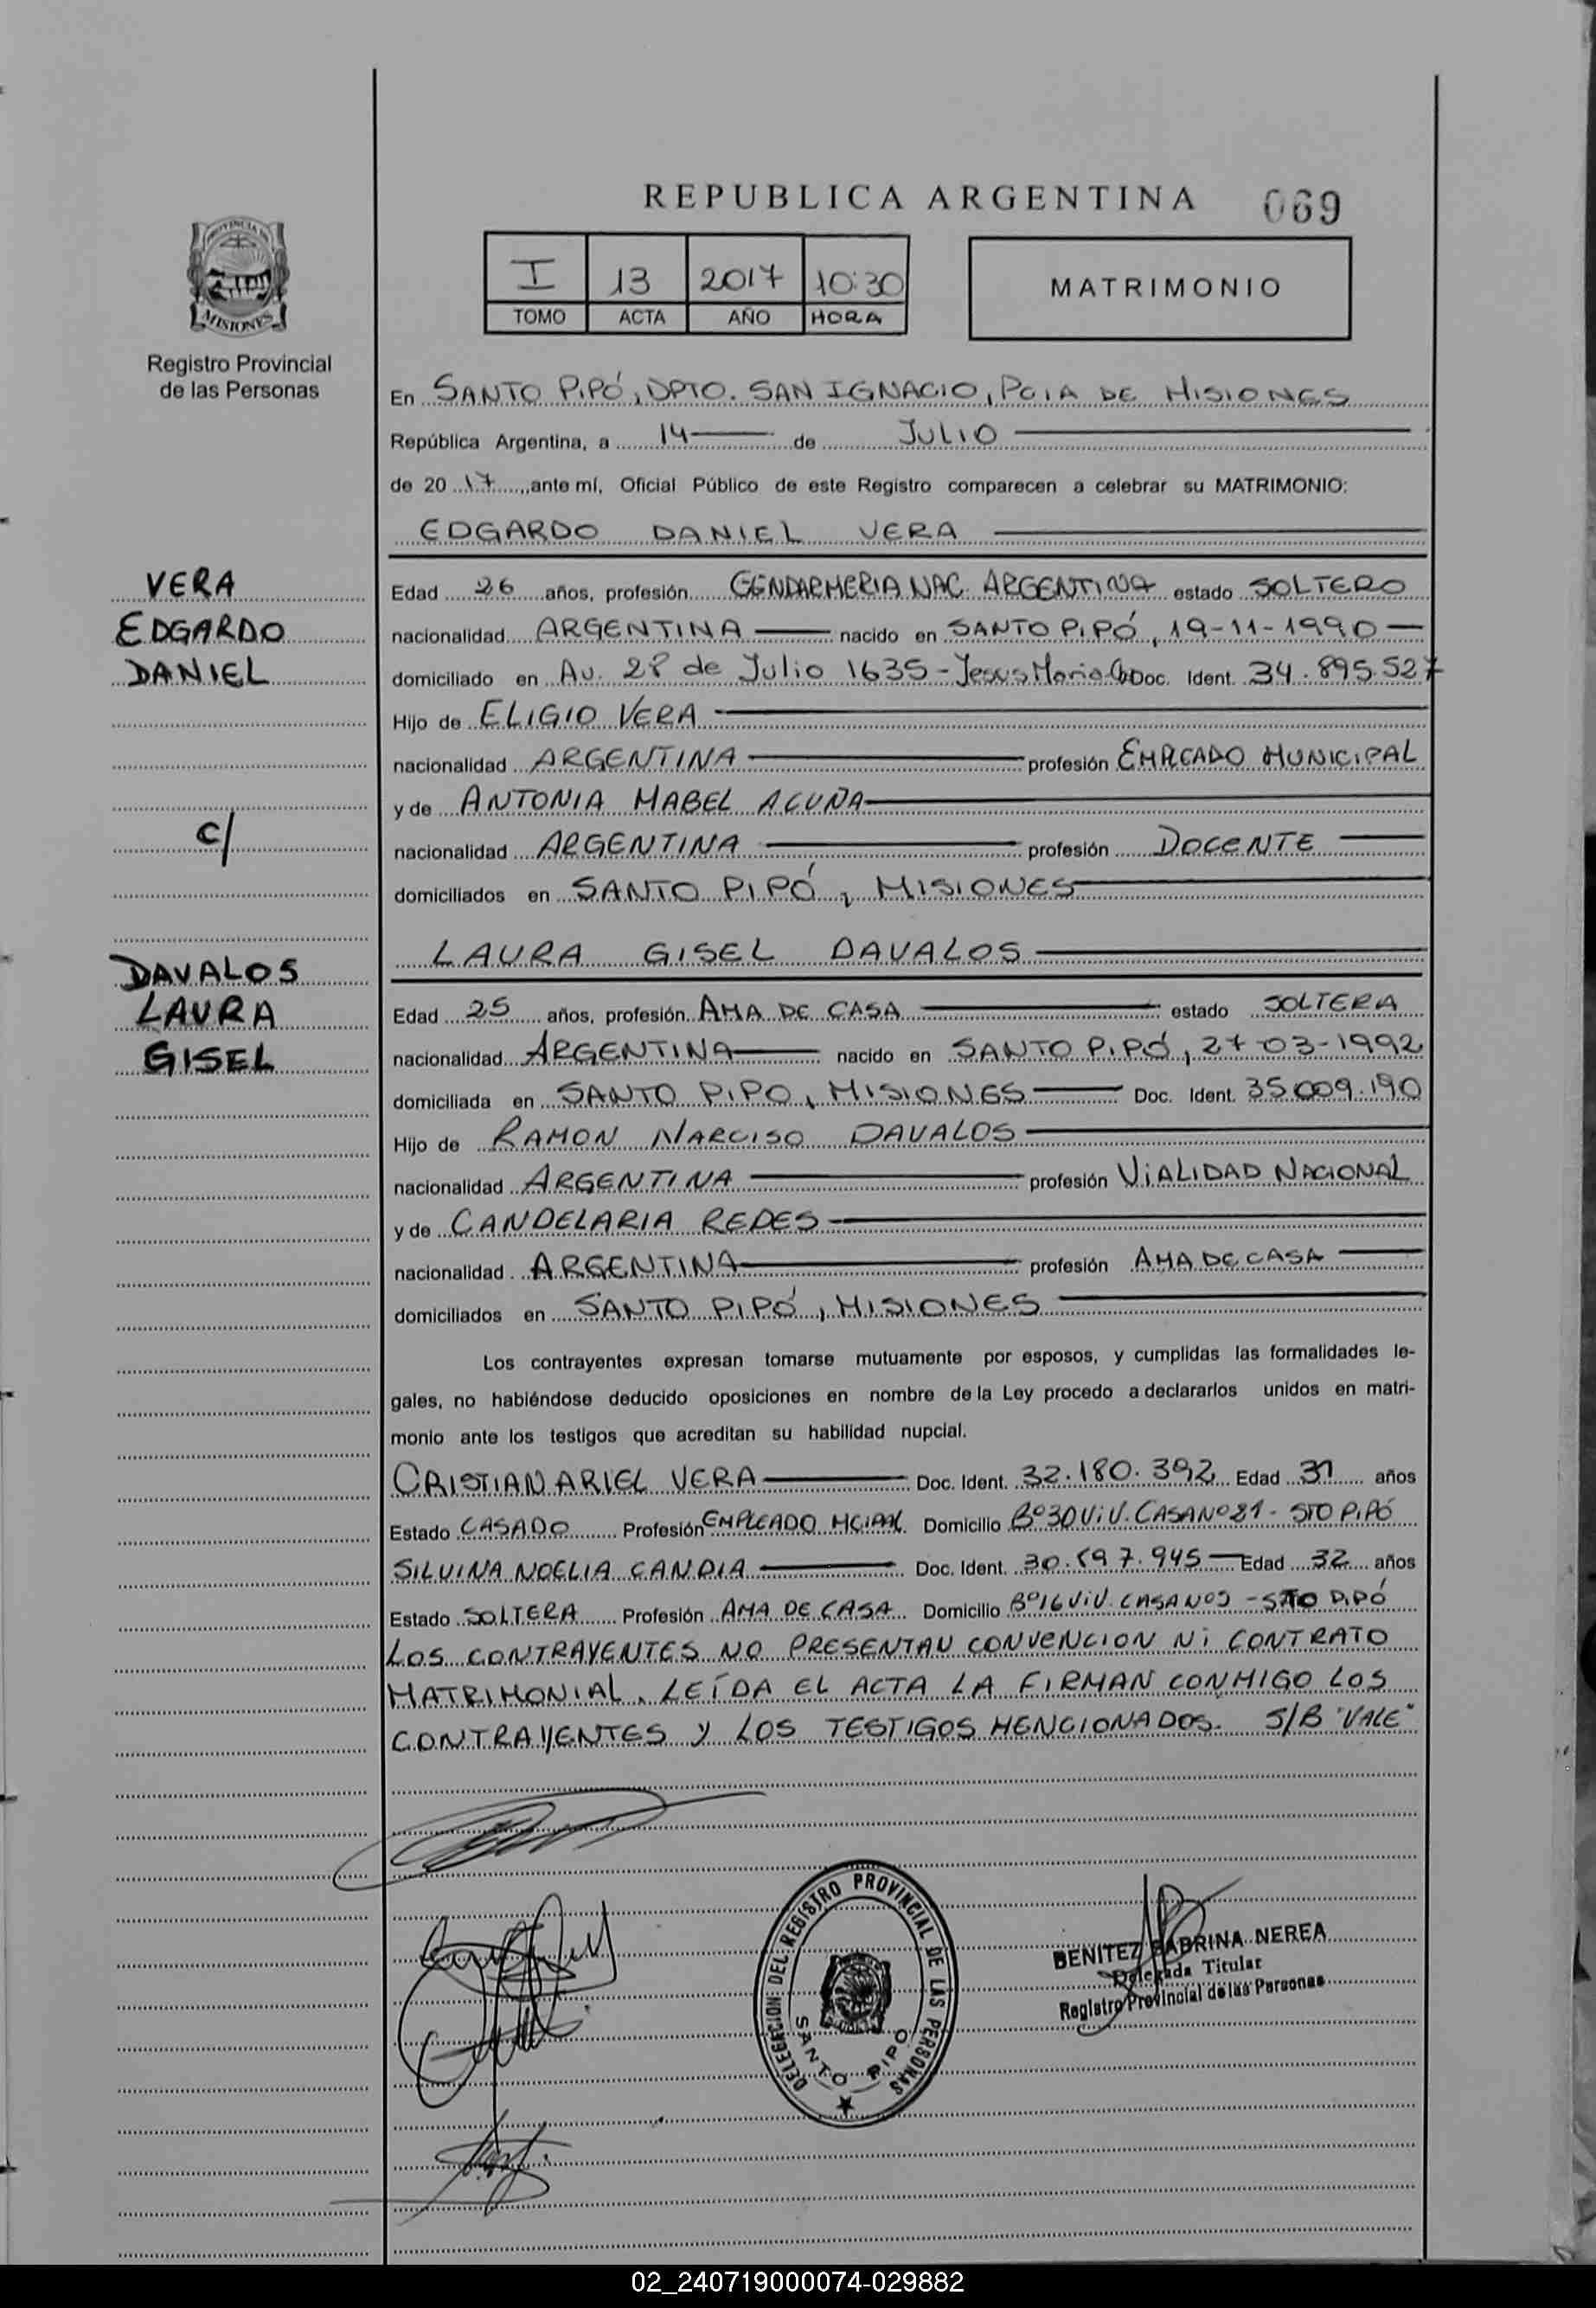 REPUBLICA ARGENTINA 069
PROVINCIA DE
MISIONES
Registro Provincial
de las Personas
I 13 2017 10:30
TOMO ACTA AÑO HORA
MATRIMONIO
En SANTO PIPÓ, DPTO. SAN IGNACIO, PCIA DE MISIONES
República Argentina, a 14 de JULIO
de 20 17 ante mí, Oficial Público de este Registro comparecen a celebrar su MATRIMONIO:
EDGARDO DANIEL VERA
VERA
EDGARDO
DANIEL
C/
DAVALOS
LAURA
GISEL
Edad 26 años, profesión GENDARMERIA NAC. ARGENTINA estado SOLTERO
nacionalidad ARGENTINA nacido en SANTO PIPÓ, 19-11-1990
domiciliado en Av. 28 de Julio 1635 - Jesus Maria Doc. Ident. 34.895.527
Hijo de ELIGIO VERA
nacionalidad ARGENTINA profesión EMPLEADO MUNICIPAL
y de ANTONIA MABEL ACUÑA
nacionalidad ARGENTINA profesión DOCENTE
domiciliados en SANTO PIPÓ, MISIONES
LAURA GISEL DAVALOS
Edad 25 años, profesión AMA DE CASA estado SOLTERA
nacionalidad ARGENTINA nacido en SANTO PIPÓ, 27 03-1992
domiciliada en SANTO PIPO, MISIONES Doc. Ident. 35.009.190
Hijo de RAMON NARCISO DAVALOS
nacionalidad ARGENTINA profesión VIALIDAD NACIONAL
y de CANDELARIA REDES
nacionalidad ARGENTINA profesión AMA DE CASA
domiciliados en SANTO PIPÓ, MISIONES
Los contrayentes expresan tomarse mutuamente por esposos, y cumplidas las formalidades le-
gales, no habiéndose deducido oposiciones en nombre de la Ley procedo a declararlos unidos en matri-
monio ante los testigos que acreditan su habilidad nupcial.
CRISTIAN ARIEL VERA Doc. Ident. 32.180.392 Edad 31 años
Estado CASADO Profesión EMPLEADO MCIPAL Domicilio Bº30 ViV. CASA Nº21 - STO PIPÓ
SILVINA NOELIA CANDIA Doc. Ident. 30.597.945 Edad 32 años
Estado SOLTERA Profesión AMA DE CASA Domicilio Bº16 ViV. CASA - STO PIPÓ
LOS CONTRAYENTES NO PRESENTAN CONVENCION NI CONTRATO
MATRIMONIAL. LEÍDA EL ACTA LA FIRMAN CONMIGO LOS
CONTRAYENTES Y LOS TESTIGOS MENCIONADOS. S/B "VALE"
DELEGACION DEL REGISTRO PROVINCIAL DE LAS PERSONAS
SANTO PIPÓ
BENITEZ SABRINA NEREA
Delegada Titular
Registro Provincial de las Personas
02_240719000074-029882